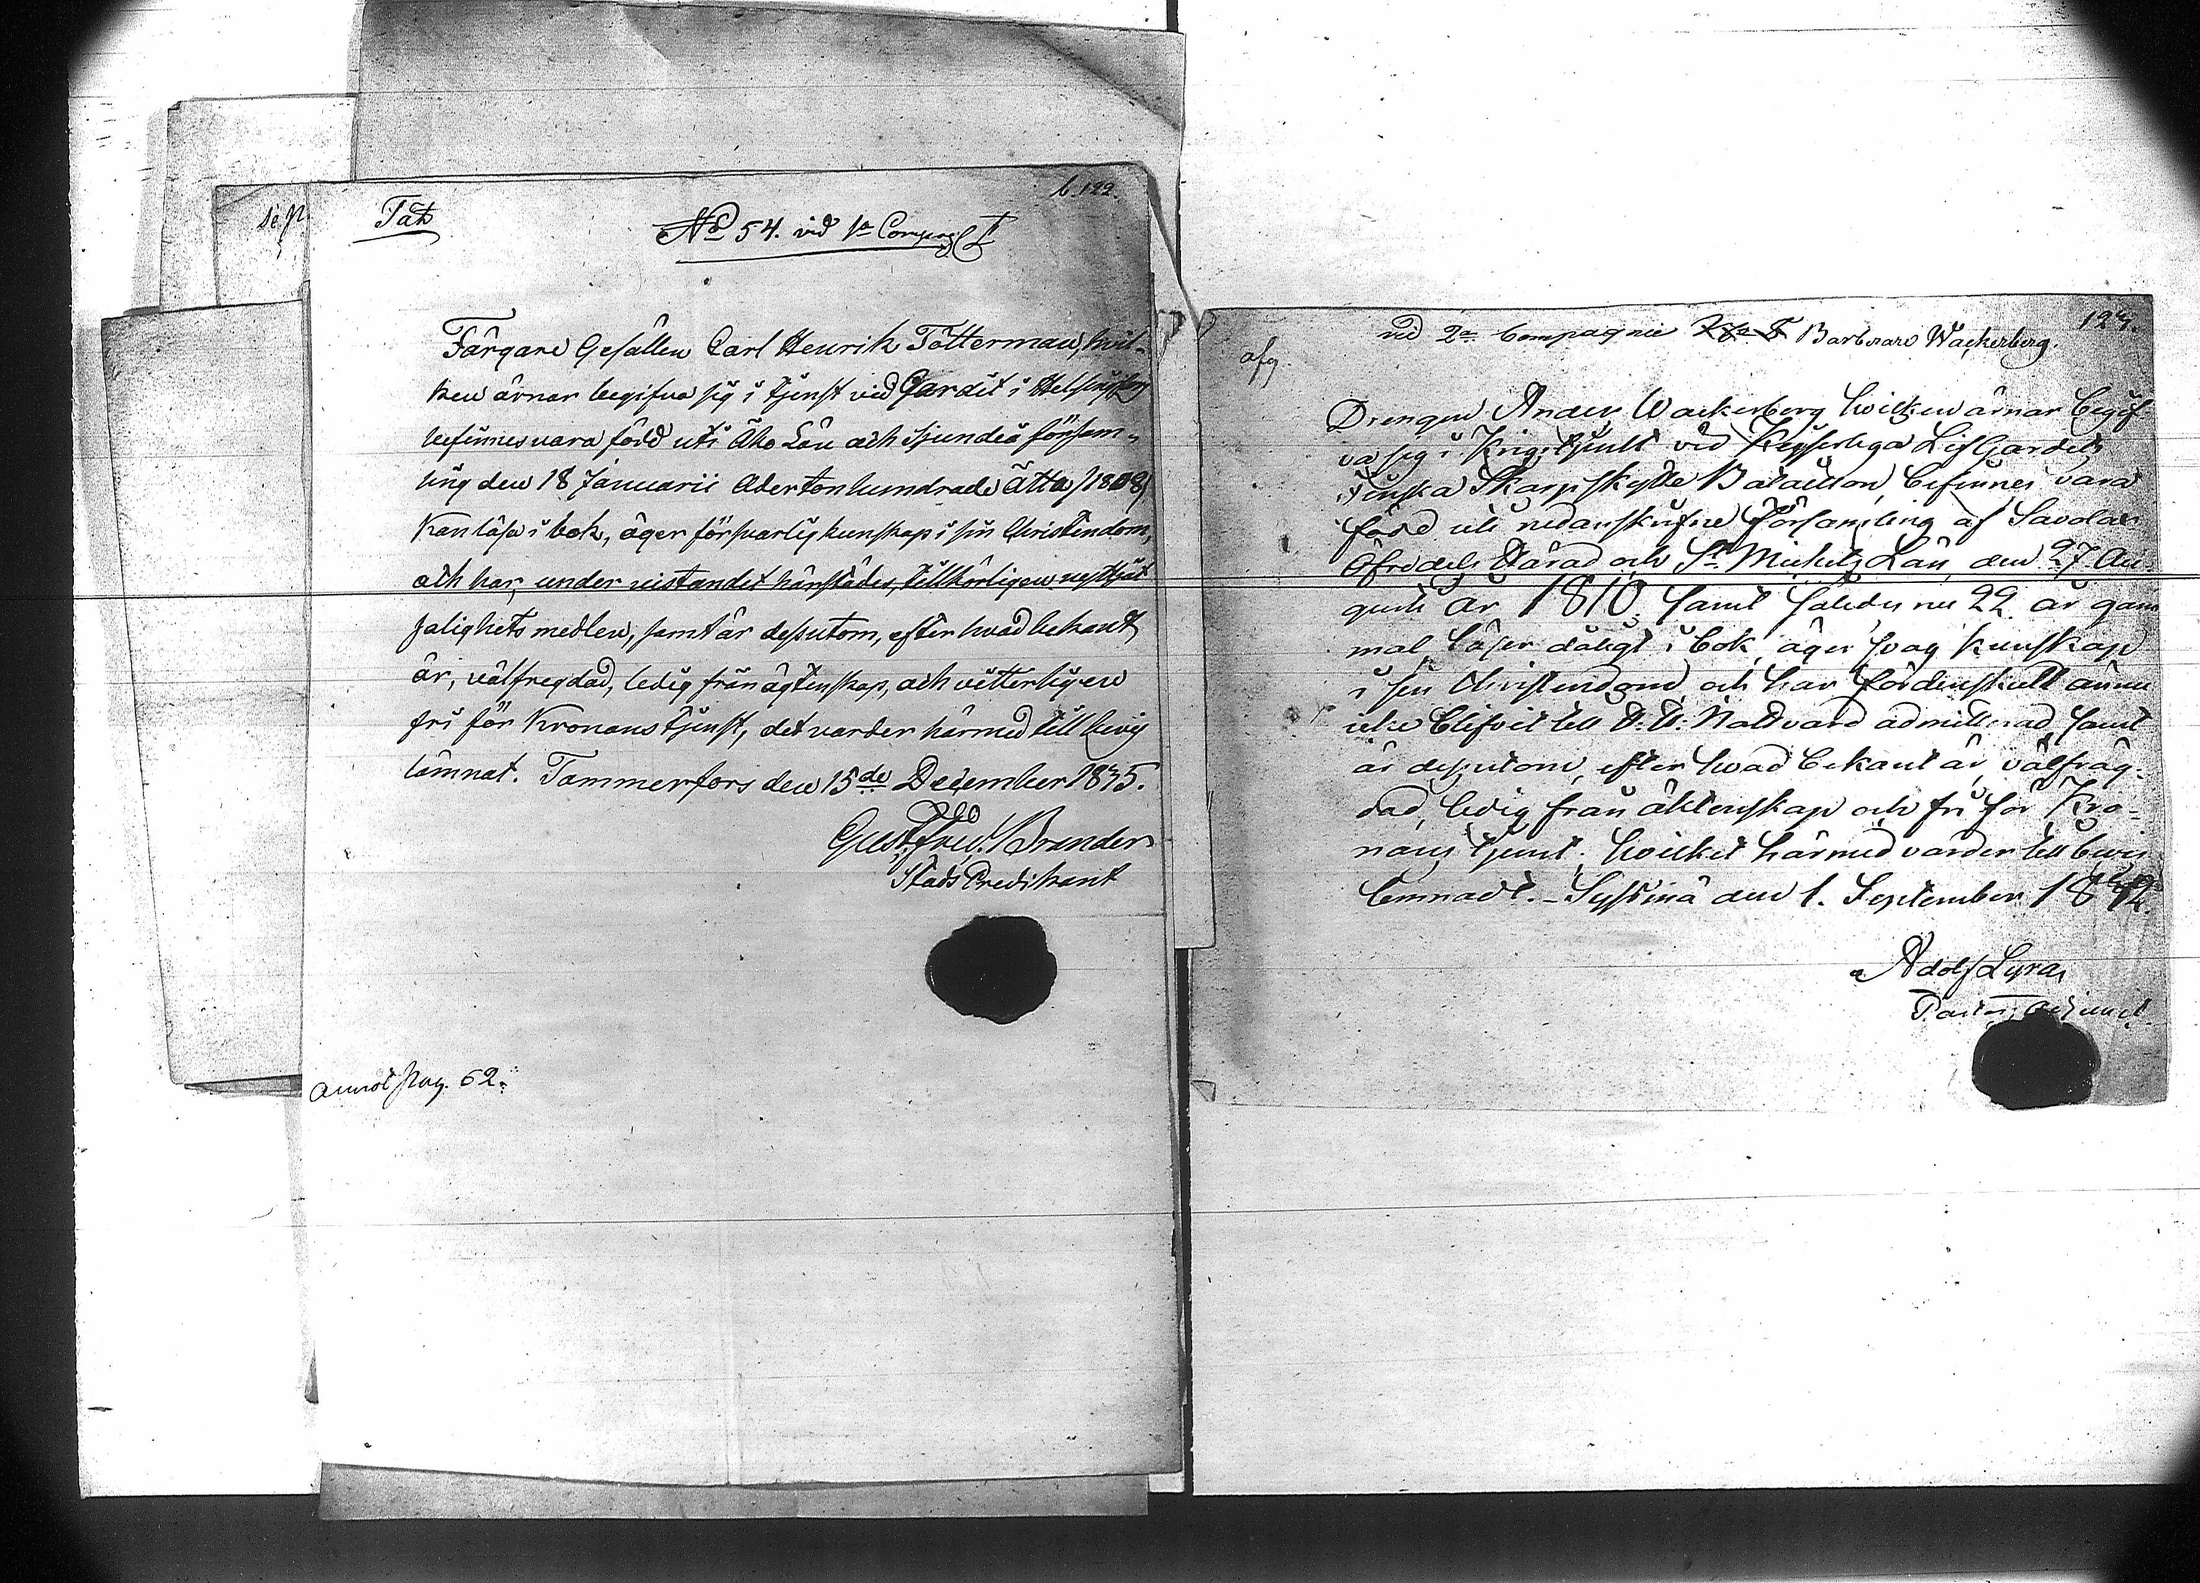 b. 122.
Tab
No 54. vid 1a Comp.
Färgare Gesällen Carl Henrik Tötterman, hvil-
ken ärnar begifva sig i tjenst vid Gardet i Helsingfors
befinnes vara född uti Åbo Län och Sjundeå församˏ
ling den 18 Januarii Adertonhundrade Åtta /1808/
kan läsa i bok, äger försvarlig kunskap i sin Christendom,
och har, under vistandet härstädes, tillbörligen nyttjat
salighets medlen, samt är dessutom, efter hvad bekant
är, välfregdad, ledig från ägtenskap, och vitterligen
fri för Kronans tjenst, det varder härmed till bevis
lämnat. Tammerfors den 15de December 1835.
Gust. Fred. Brander
Stads Predikant
annot pag. 62.
123.
vid 2a Compagnie Barberare Wackerberg.
afg.
Drengen Anders Wackerberg hvilken ärnar begif
va sig i Krigstjenst vid Kejserliga Lif Gardets
Finska Skarpskytte Bataillon, befinnes vara
född uti nedanskrifne Församling af Savolax
Öfredels Härad och St Michels Län den 27 Au
gusti år 1810. samt således nu 22 år gam
mal läser dåligt i bok, äger svag kunskap
i sin Christendom och har fördenskull ännu
icke blifvit till H. H. Nattvard admitterad, samt
är dessutom, efter hvad bekant är, välfräg-
dad, ledig från äktenskap och fri för Kro-
nans tjenst; hvilket härmed varder till bevis
lemnadt. - Syssmä den 1. September 1832.
Adolf Lyra,
Pastors Adjunct.